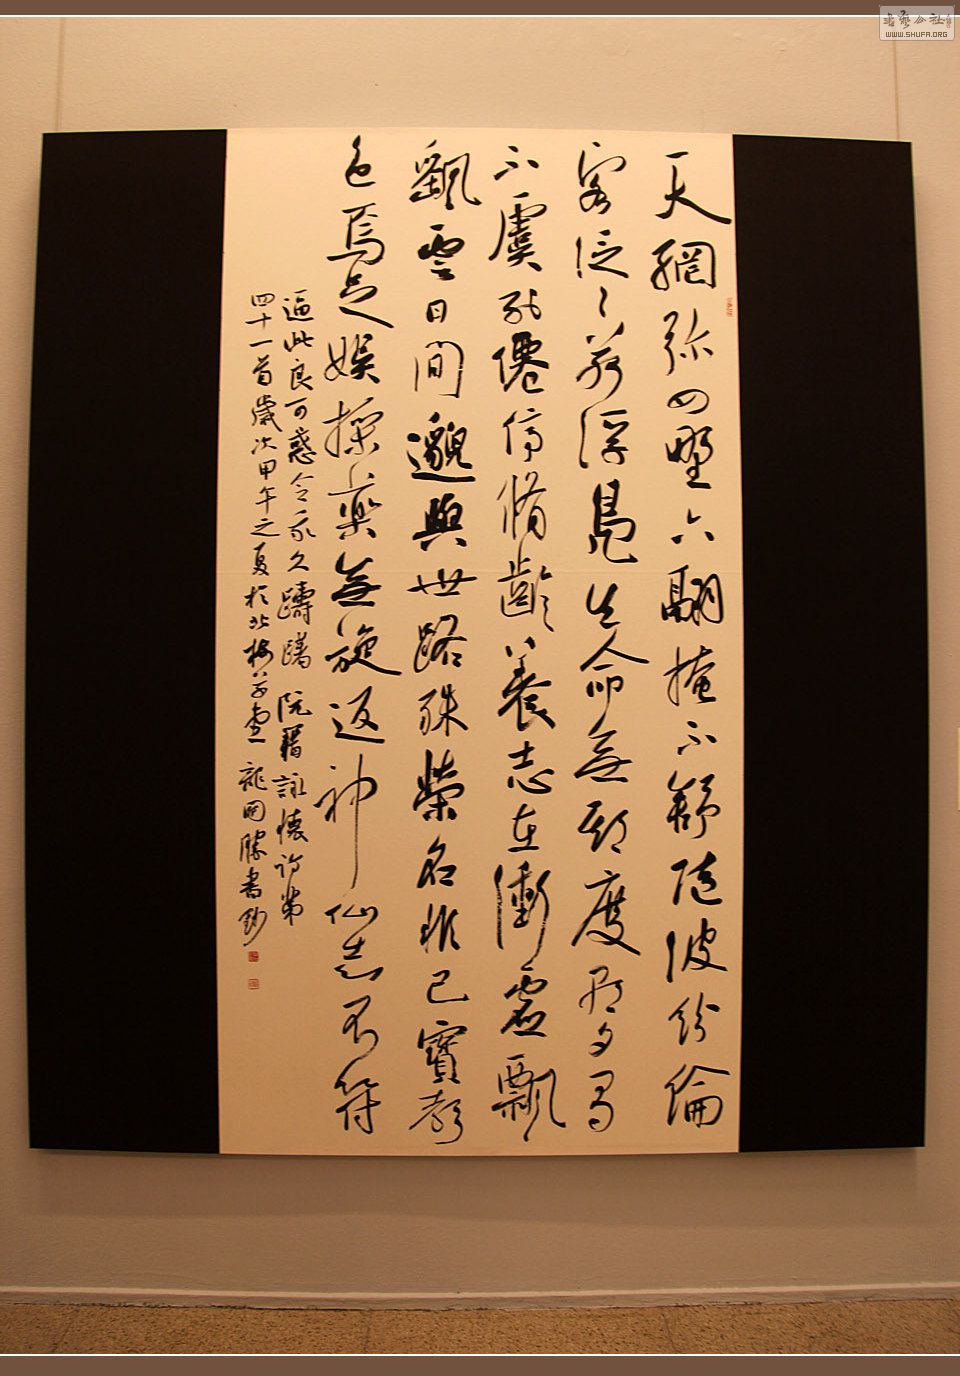 天網弥四野六翮掩不舒随波紛綸
客泛〻若浮鳧生命無期度朝夕有
不虞列僊停脩齡養志在衝虛飄
颻雲日間邈與世路殊榮名非己寶聲
色焉足娱採藥無旋返神仙志不符
逼此良可惑令我久躊躇 阮籍詠懷詩第
四十一首歲次甲午之夏於北梅草堂 龍開勝書鈔
書藝公社
WWW.SHUFA.ORG